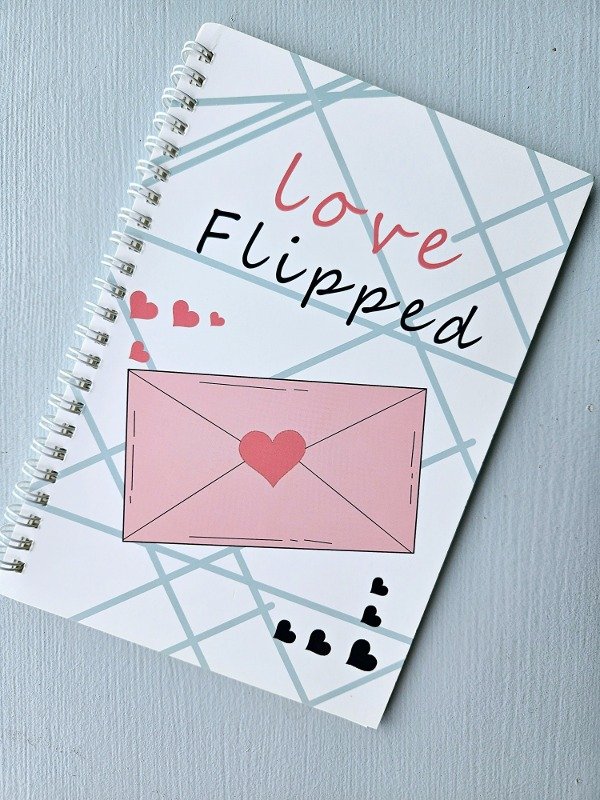 love
Flipped